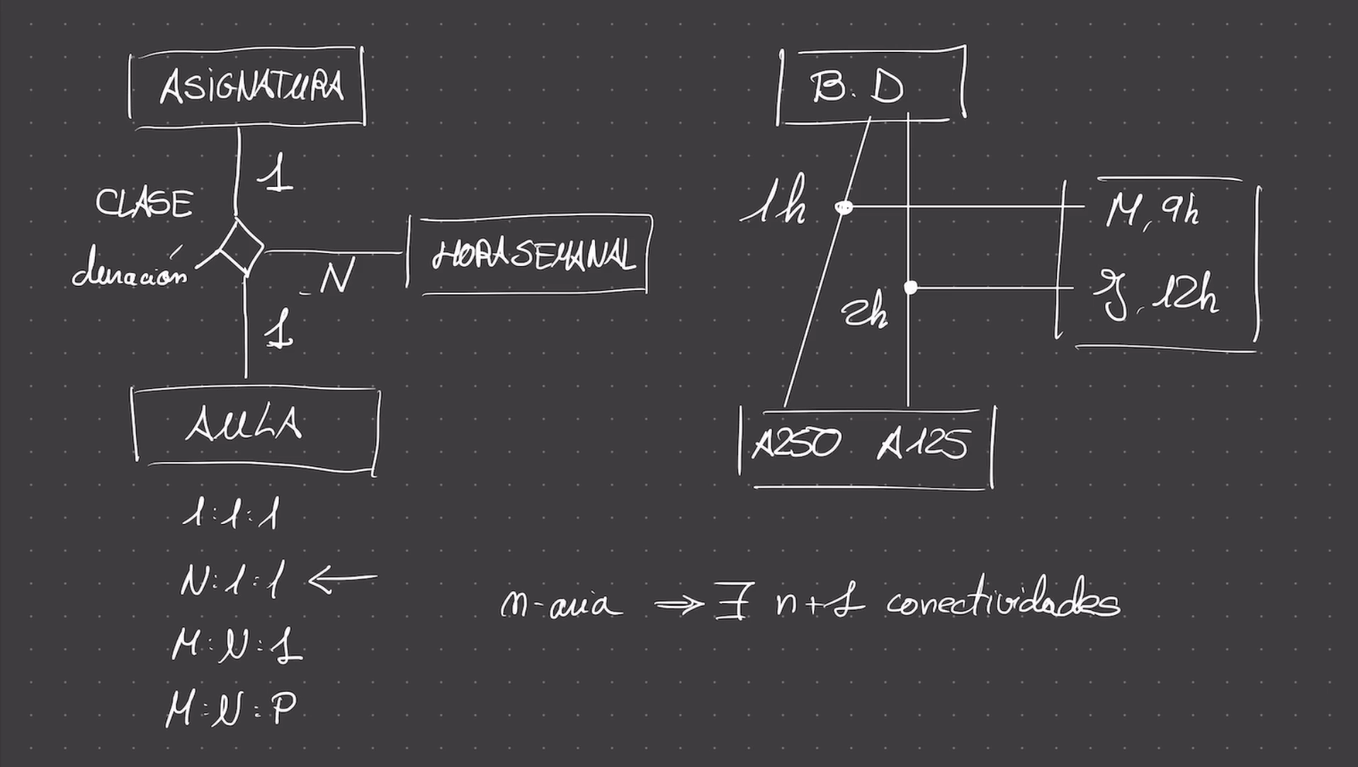 ASIGNATURA
1
CLASE
duración
N
HORASEMANAL
1
AULA
1:1:1
N:1:1 ←
M:N:1
M:N:P
B.D
1h
M, 9h
2h
J, 12h
A250 A125
n-aria ⇒ ∃ n+1 conectividades